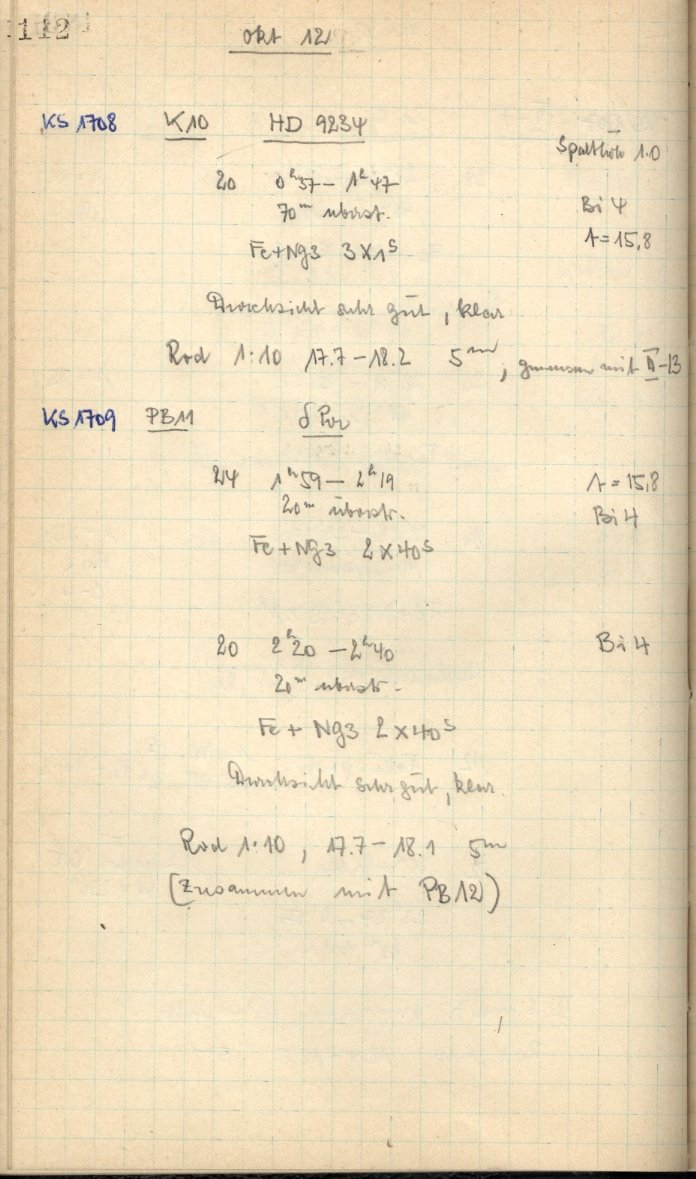 112
Okt 12
KS 1708 K10 HD 9234
Spalthöhe 1.0
20 0ʰ37 – 1ʰ47
70ᵐ überst.
Bi 4
Fe+Ng3 3×1ˢ
A = 15,8
Durchsicht sehr gut, klar
Rod 1:10 17.7–18.2 5ᵐ, mit II-13
KS 1709 PB11 δ Per
24 1ʰ59 – 2ʰ19
A = 15,8
20ᵐ überstr.
Bi 4
Fe+Ng3 2×40ˢ
20 2ʰ20 – 2ʰ40
Bi 4
20ᵐ überstr.
Fe + Ng3 2×40ˢ
Durchsicht sehr gut, klar.
Rod 1:10, 17.7–18.1 5ᵐ
(Zusammen mit PB12)